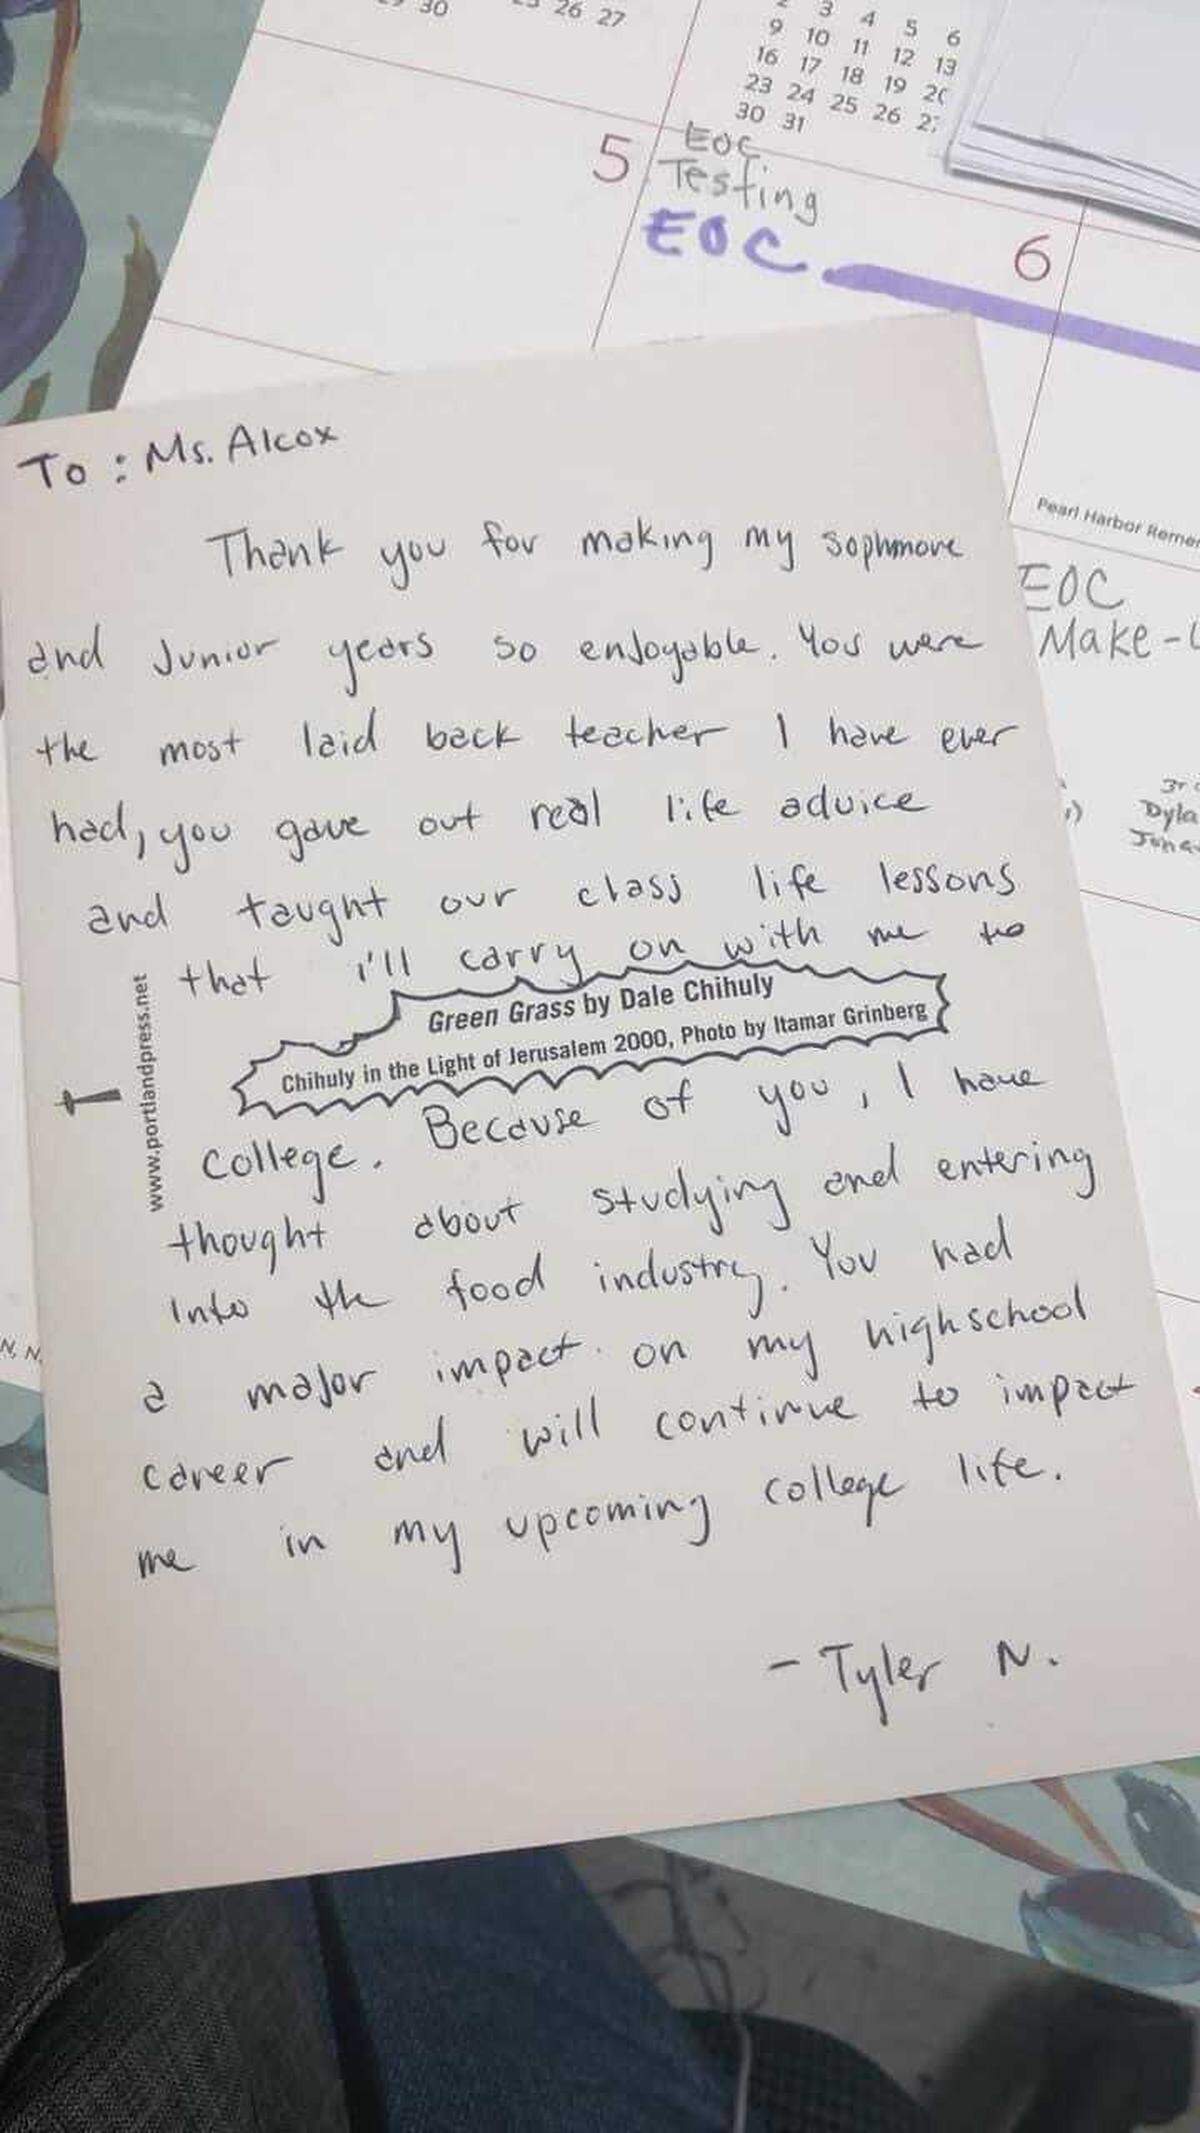 30
26 27
3 4 5 6
9 10 11 12 13
16 17 18 19
23 24 25 26
30 31
5
EOC
Testing
EOC
6
Pearl Harbor
EOC
Make-
To: Ms. Alcox
Thank you for making my sophmore
and Junior years so enjoyable. You were
the most laid back teacher I have ever
had, you gave out real life advice
and taught our class life lessons
that i'll carry on with me to
Green Grass by Dale Chihuly
Chihuly in the Light of Jerusalem 2000, Photo by Itamar Grinberg
www.portlandpress.net
college. Because of you, I have
thought about studying and entering
into the food industry. You had
a major impact on my highschool
career and will continue to impact
me in my upcoming college life.
- Tyler N.